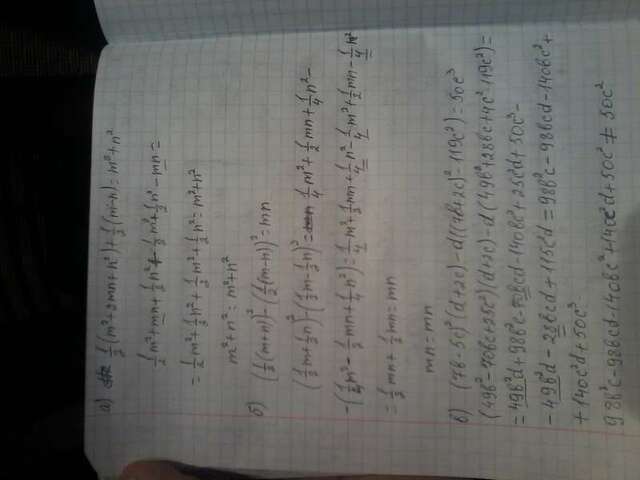 а) 1/2(m²+2mn+n²)+1/2(m-n)²=m²+n²
1/2m²+mn+1/2n²+1/2m²+1/2n²-mn=
=1/2m²+1/2n²+1/2m²+1/2n²=m²+n²
m²+n²=m²+n²
б) (1/2(m+n))²-(1/2(m-n))²=mn
(1/2m+1/2n)²-(1/2m-1/2n)²=1/4m²+1/2mn+1/4n²-
-(1/4m²-1/2mn+1/4n²)=1/4m²+1/2mn+1/4n²-1/4m²+1/2mn-1/4n²
=1/2mn+1/2mn=mn
mn=mn
в) (7b-5c)²(d+2c)-d((7b+2c)²-119c²)=50c³
(49b²-70bc+25c²)(d+2c)-d(49b²+28bc+4c²-119c²)=
=49b²d+98b²c-70bcd-140bc²+25c²d+50c³-
-49b²d-28bcd+115c²d=98b²c-98bcd-140bc²+
+140c²d+50c³
98b²c-98bcd-140bc²+140c²d+50c³≠50c³